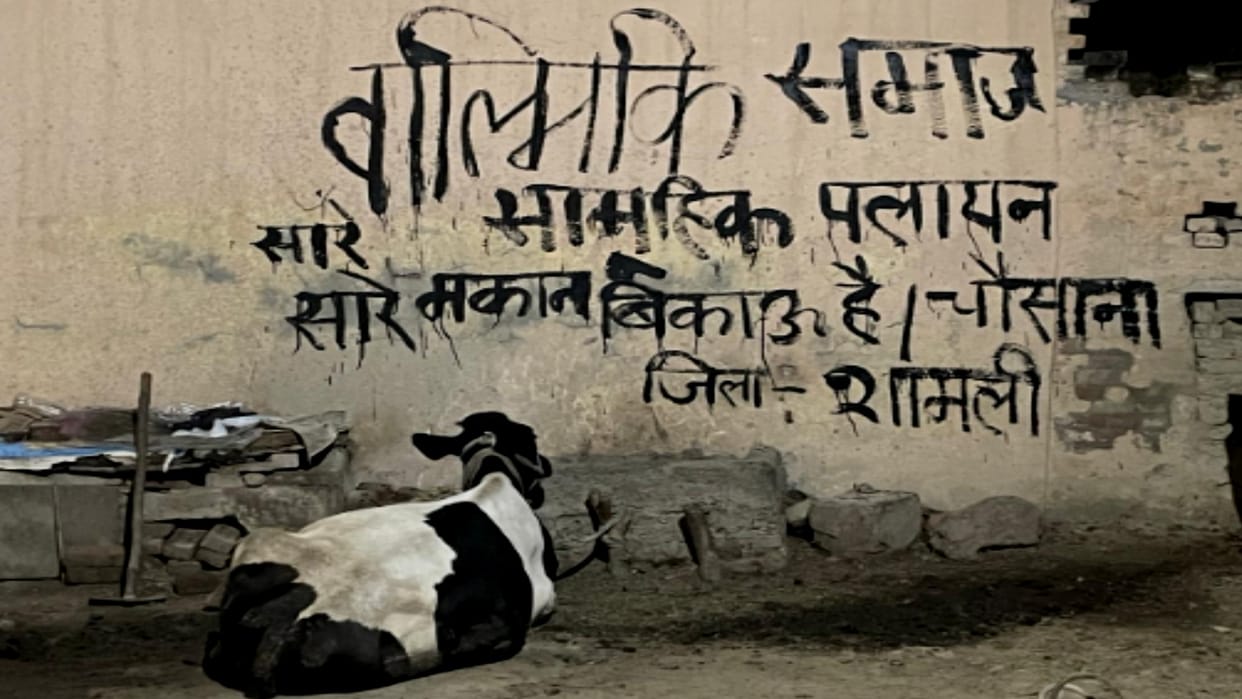 वाल्मिकि समाज
सारे सामहिक पलायन
सारे मकान बिकाऊ है। चौसाना
जिला - शामली